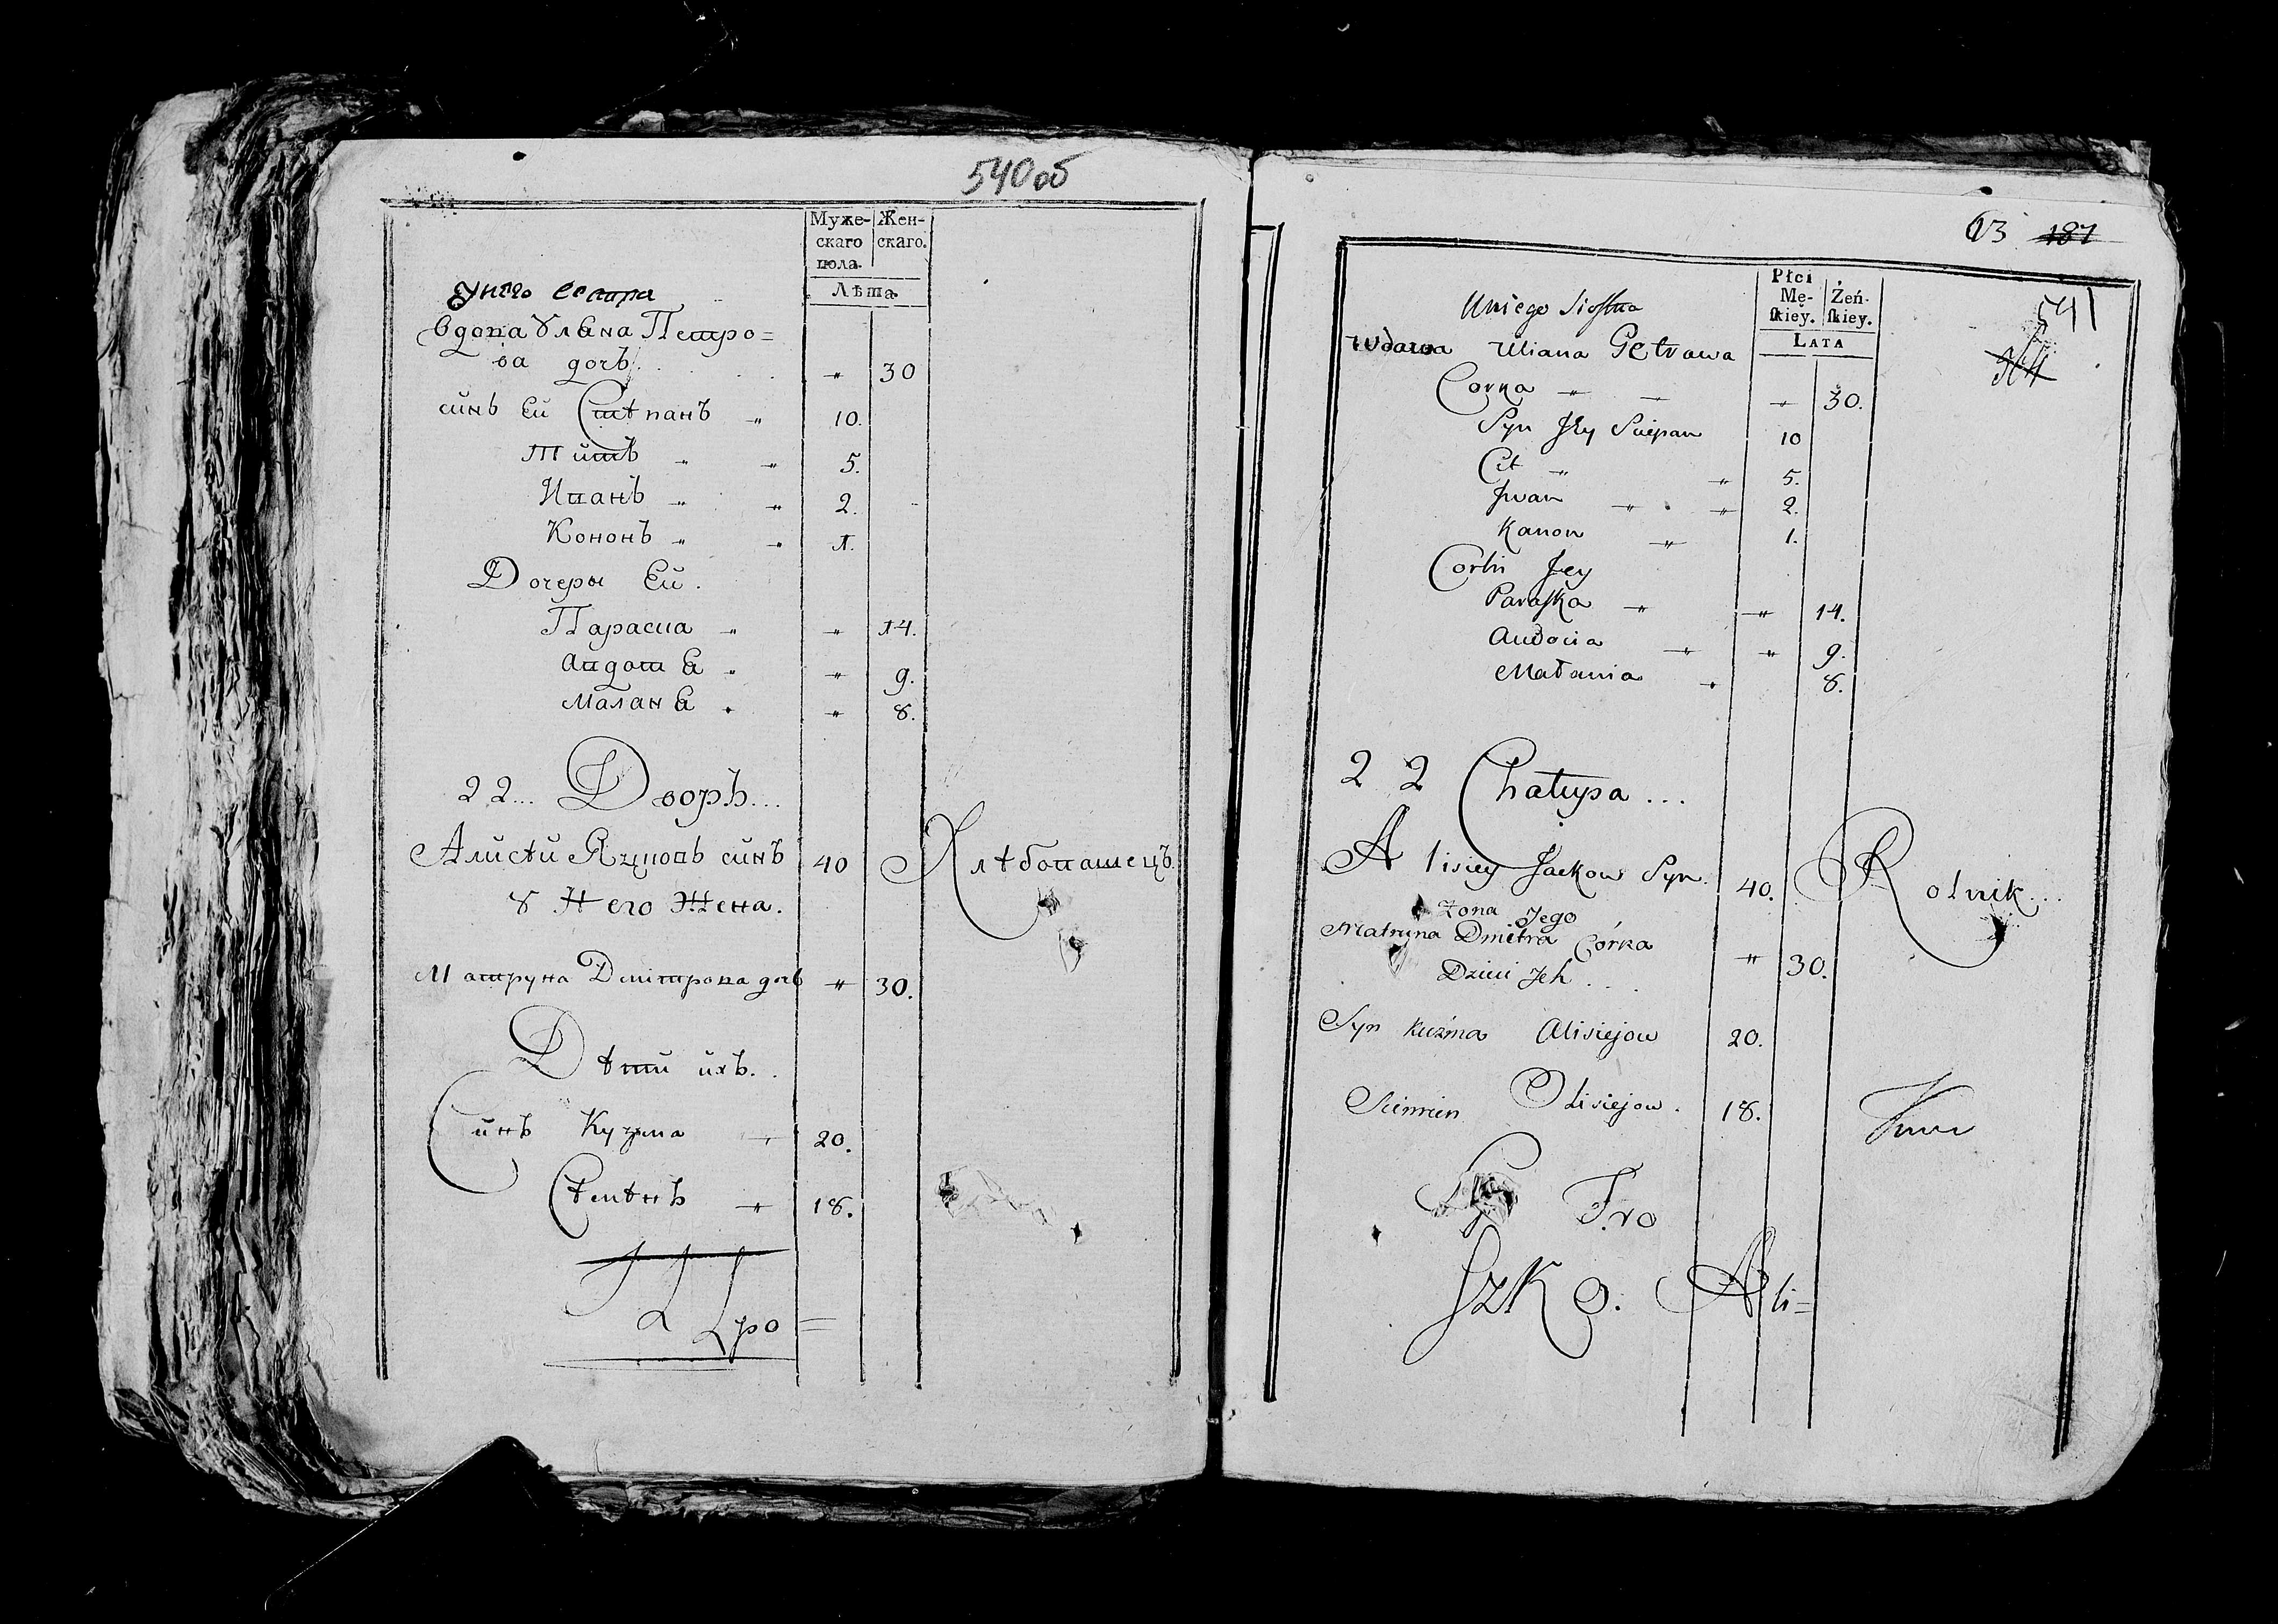 540об
Муже- Жен-
скаго скаго.
пола.
Лѣта
У него сестра
вдова Уляна Петро=
ва дочь " 30
синъ Ей Стѣпанъ " 10.
Титъ " " 5.
Иванъ " " 2.
Кононъ " " 1.
Дочеры Ей.
Парасиа " " 14.
Авдотя " " 9.
Маланя " " 8.
22... Дворъ...
Алисѣй Яцковъ синъ 40 Хлѣбопашецъ
У Него Жена.
Матруна Дмітрова дочь " 30.
Дѣти ихъ.
Синъ Кузма " 20.
Сѣмѣнъ " 18.
63 187
Płci
Mę- Żeń-
ſkiey. ſkiey.
LATA
541
Uniego Siostra
Wdawa Uliana Petrawa
Corka " 30.
Syn Jey Sciepan 10
Cit " " 5.
Jwan " " 2.
Kanon " 1.
Corki Jey
Paraska " " 14.
Audocia " " 9.
Małania " 8.
22 Chałupa...
Alisiey Jackow Syn. 40. Rolnik...
Żona Jego
Matruna Dmitra Córka " 30.
Dzieci Jch...
Syn Kuźma Alisiejow 20.
Siemien Olisiejow. 18.